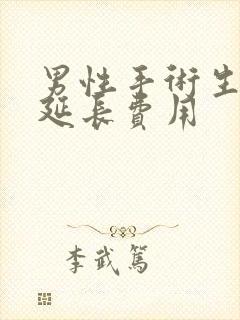 男性手術生
延長費用
李武篤